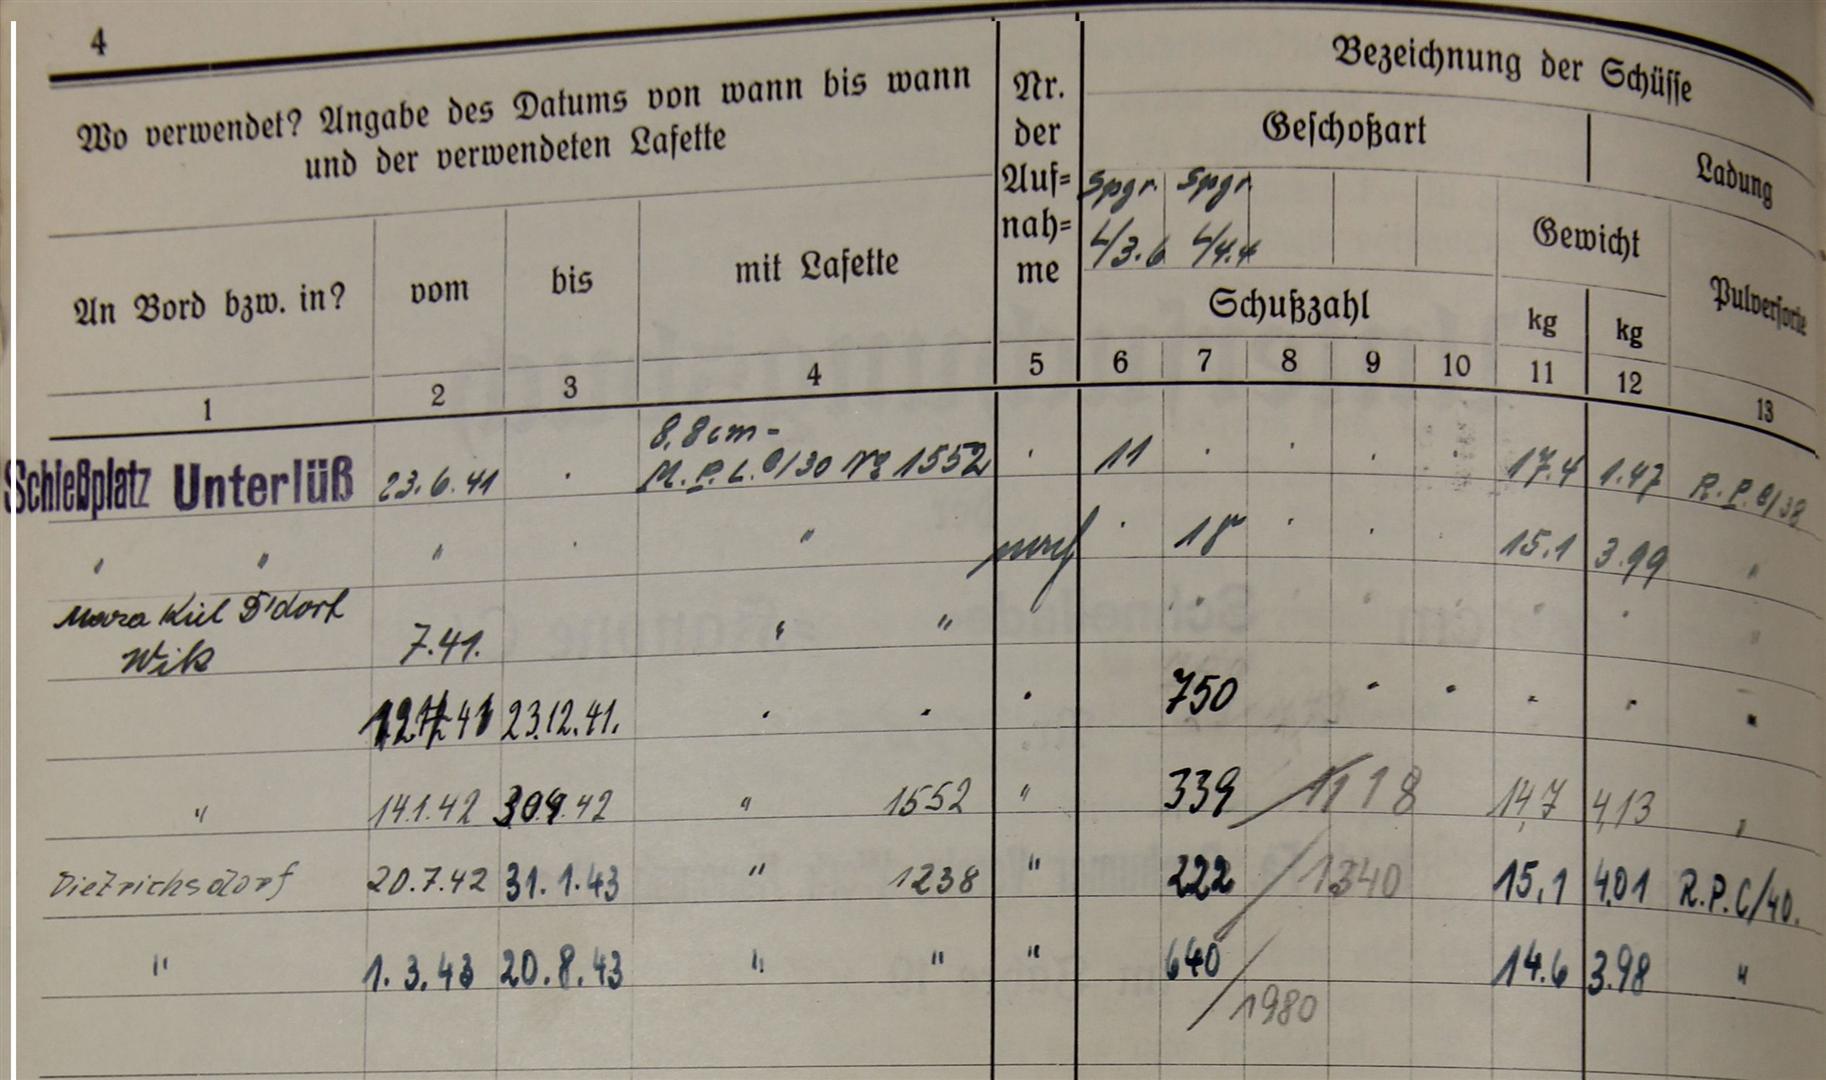 4
Wo verwendet? Angabe des Datums von wann bis wann
und der verwendeten Lafette
Nr.
der
Auf=
nah=
me
Bezeichnung der Schüsse
Geschoßart
Ladung
Spgr. Spgr.
L/3.6 L/4.4
Gewicht
Pulversorte
An Bord bzw. in? vom bis mit Lafette
Schußzahl
kg kg
1 2 3 4 5 6 7 8 9 10 11 12 13
8,8cm-
Schießplatz Unterlüß 23.6.41 M.P.L.C/30 No 1552 11 17.4 1.47 R.P.C/38
" " " " 18 15.1 3.99 "
Kiel D'dorf
Wik 7.41. " "
23.12.41. 750
" 14.1.42 30.4.42 " 1552 " 339 / 1118 14,7 4,13 "
Dietrichsdorf 20.7.42 31.1.43 " 1238 " 222 / 1340 15,1 4.01 R.P.C/40.
" 1.3.43 20.8.43 " " " 640 14.6 3.98 "
/ 1980